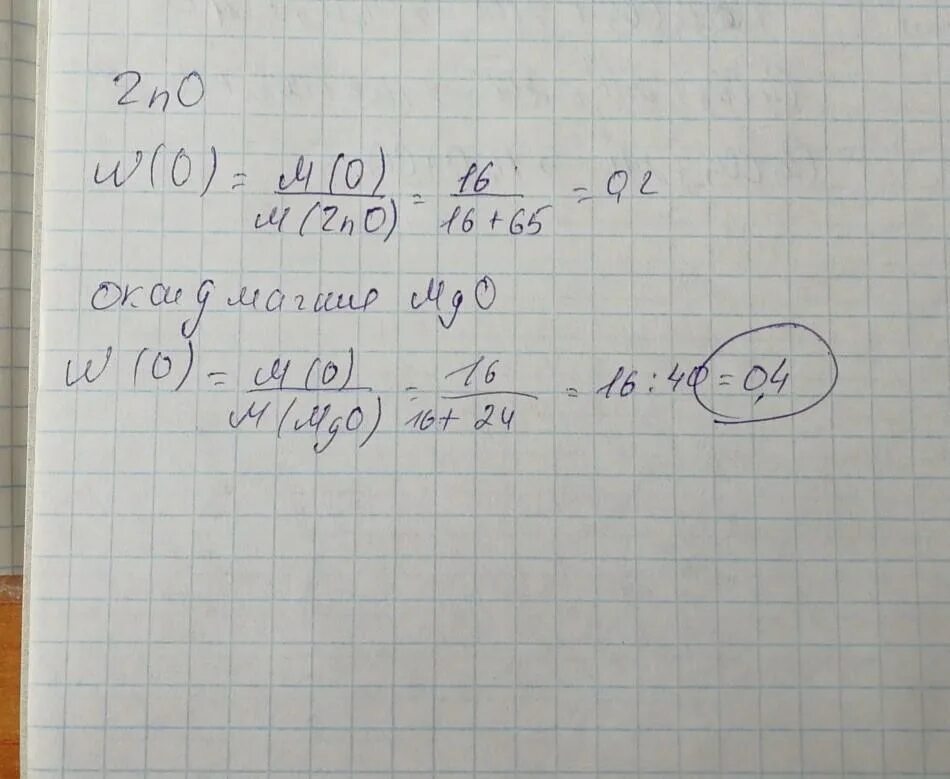 ZnO
W(O) = M(O) / M(ZnO) = 16 / 16+65 = 0,2
оксид магния MgO
W(O) = M(O) / M(MgO) = 16 / 16+24 = 16:40 = 0,4